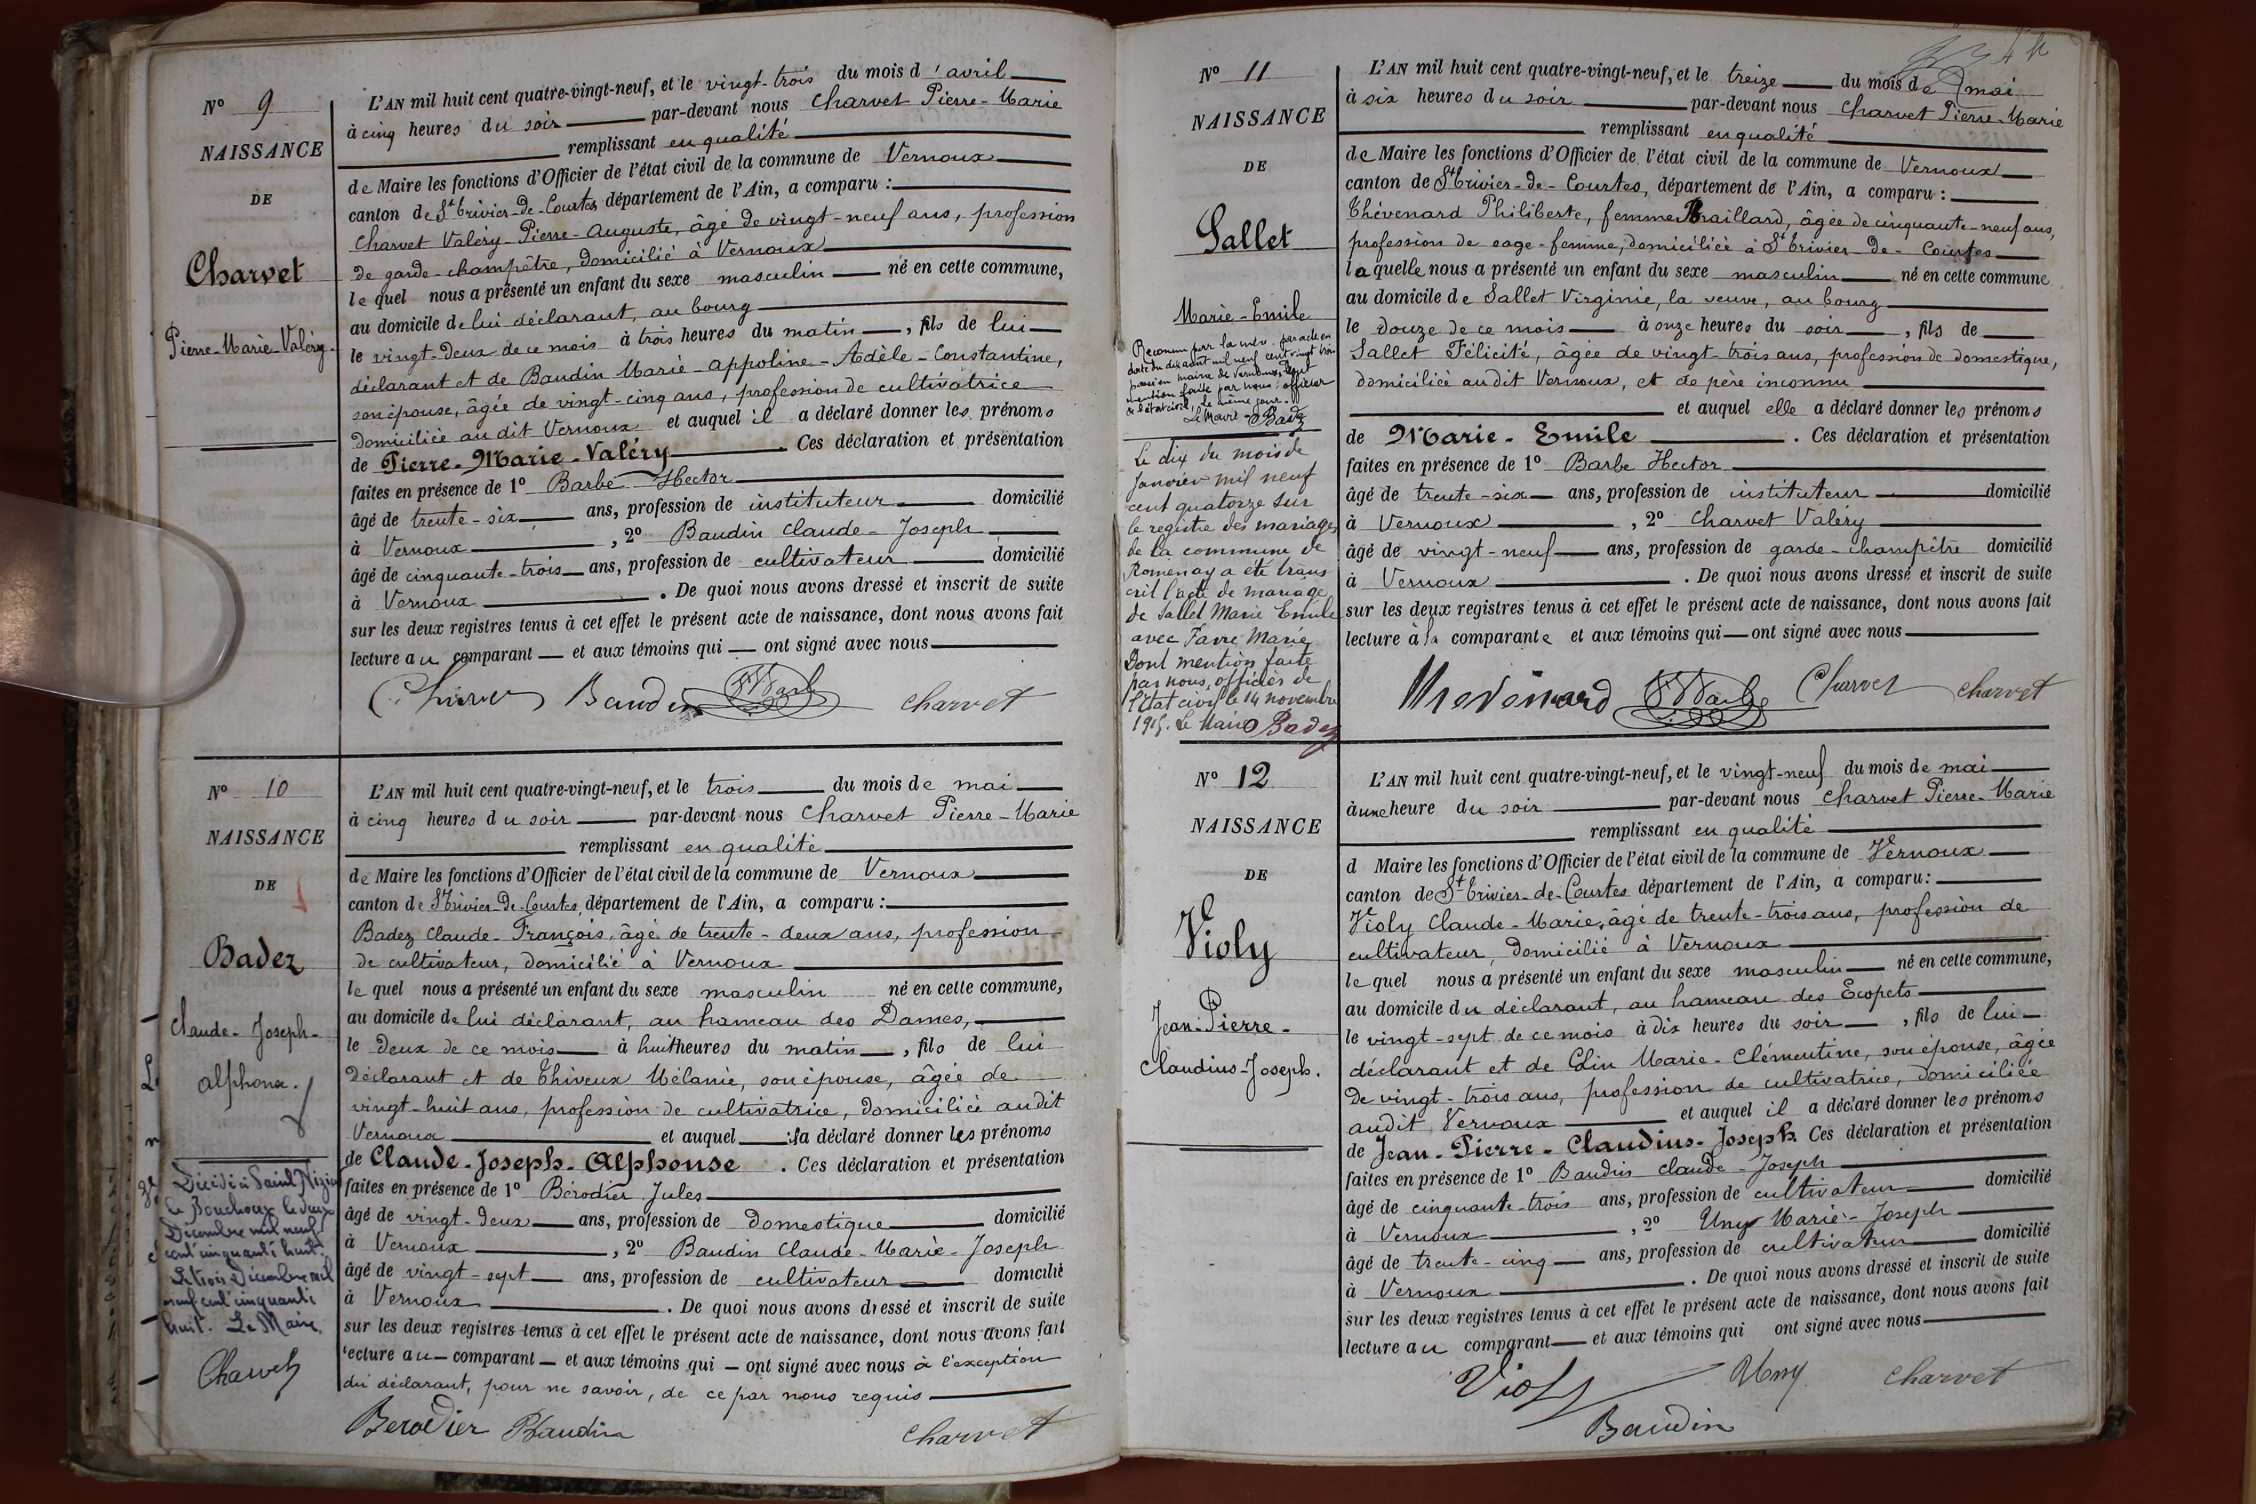 N° 9
NAISSANCE
DE
Charvet
Pierre-Marie-Valéry.
L'AN mil huit cent quatre-vingt-neuf, et le vingt-trois du mois d'avril
à cinq heures du soir par-devant nous Charvet Pierre-Marie
remplissant en qualité
de Maire les fonctions d'Officier de l'état civil de la commune de Vernoux
canton de St Trivier-de-Courtes, département de l'Ain, a comparu :
Charvet Valéry-Pierre-Auguste, âgé de vingt-neuf ans, profession
de garde-champêtre, domicilié à Vernoux
lequel nous a présenté un enfant du sexe masculin né en cette commune,
au domicile de lui déclarant, au bourg
le vingt-deux de ce mois à trois heures du matin, fils de lui
déclarant et de Baudin Marie-Appoline-Adèle-Constantine,
son épouse, âgée de vingt-cinq ans, profession de cultivatrice
domiciliée au dit Vernoux et auquel il a déclaré donner les prénoms
de Pierre-Marie-Valéry. Ces déclaration et présentation
faites en présence de 1° Barbe Hector
âgé de trente-six ans, profession de instituteur domicilié
à Vernoux, 2° Baudin Claude-Joseph
âgé de cinquante-trois ans, profession de cultivateur domicilié
à Vernoux. De quoi nous avons dressé et inscrit de suite
sur les deux registres tenus à cet effet le présent acte de naissance, dont nous avons fait
lecture au comparant et aux témoins qui ont signé avec nous
Charvet Baudin Barbe Charvet
N° 10
NAISSANCE
DE
Badez
Claude-Joseph-
Alphonse.
Décédé à Saint Nizier
le Bouchoux le deux
Décembre mil neuf
cent cinquante huit.
Le trois Décembre mil
neuf cent cinquante
huit. Le Maire,
Charvet
L'AN mil huit cent quatre-vingt-neuf, et le trois du mois de mai
à cinq heures du soir par-devant nous Charvet Pierre-Marie
remplissant en qualité
de Maire les fonctions d'Officier de l'état civil de la commune de Vernoux
canton de St Trivier-de-Courtes, département de l'Ain, a comparu :
Badez Claude-François, âgé de trente-deux ans, profession
de cultivateur, domicilié à Vernoux
lequel nous a présenté un enfant du sexe masculin né en cette commune,
au domicile de lui déclarant, au hameau des Dames,
le deux de ce mois à huit heures du matin, fils de lui
déclarant et de Thiveux Mélanie, son épouse, âgée de
vingt-huit ans, profession de cultivatrice, domiciliée audit
Vernoux et auquel il a déclaré donner les prénoms
de Claude-Joseph-Alphonse. Ces déclaration et présentation
faites en présence de 1° Bérodier Jules
âgé de vingt-deux ans, profession de domestique domicilié
à Vernoux, 2° Baudin Claude-Marie-Joseph
âgé de vingt-sept ans, profession de cultivateur domicilié
à Vernoux. De quoi nous avons dressé et inscrit de suite
sur les deux registres tenus à cet effet le présent acte de naissance, dont nous avons fait
lecture au comparant et aux témoins qui ont signé avec nous à l'exception
du déclarant, pour ne savoir, de ce par nous requis
Berodier Baudin Charvet
N° 11
NAISSANCE
DE
Sallet
Marie-Emile
Reconnu par la mère par acte en
date du dix août mil neuf cent vingt trois
passé en mairie de Vernoux, dont
mention faite par nous, officier
de l'état civil, le même jour.
Le Maire Badez
Le dix du mois de
Janvier mil neuf
cent quatorze sur
le registre des mariages
de la commune de
Romenay a été trans
crit l'acte de mariage
de Sallet Marie Emile
avec Favre Marie
Dont mention faite
par nous, officier de
l'Etat civil le 14 novembre
1915. Le Maire Badez
L'AN mil huit cent quatre-vingt-neuf, et le treize du mois de mai
à six heures du soir par-devant nous Charvet Pierre-Marie
remplissant en qualité
de Maire les fonctions d'Officier de l'état civil de la commune de Vernoux
canton de St Trivier-de-Courtes, département de l'Ain, a comparu :
Thévenard Philiberte, femme Braillard, âgée de cinquante-neuf ans,
profession de sage-femme, domiciliée à St Trivier-de-Courtes
laquelle nous a présenté un enfant du sexe masculin né en cette commune
au domicile de Sallet Virginie, la veuve, au bourg
le douze de ce mois à onze heures du soir, fils de
Sallet Félicité, âgée de vingt-trois ans, profession de domestique,
domiciliée audit Vernoux, et de père inconnu
et auquel elle a déclaré donner les prénoms
de Marie-Emile. Ces déclaration et présentation
faites en présence de 1° Barbe Hector
âgé de trente-six ans, profession de instituteur domicilié
à Vernoux, 2° Charvet Valéry
âgé de vingt-neuf ans, profession de garde-champêtre domicilié
à Vernoux. De quoi nous avons dressé et inscrit de suite
sur les deux registres tenus à cet effet le présent acte de naissance, dont nous avons fait
lecture à la comparante et aux témoins qui ont signé avec nous
Thevenard Barbe Charvet Charvet
N° 12
NAISSANCE
DE
Violy
Jean-Pierre-
Claudius-Joseph.
L'AN mil huit cent quatre-vingt-neuf, et le vingt-neuf du mois de mai
à une heure du soir par-devant nous Charvet Pierre-Marie
remplissant en qualité
d Maire les fonctions d'Officier de l'état civil de la commune de Vernoux
canton de St Trivier-de-Courtes département de l'Ain, a comparu :
Violy Claude-Marie, âgé de trente-trois ans, profession de
cultivateur, domicilié à Vernoux
lequel nous a présenté un enfant du sexe masculin né en cette commune,
au domicile du déclarant, au hameau des Ecopets
le vingt-sept de ce mois à dix heures du soir, fils de lui
déclarant et de Colin Marie-Clémentine, son épouse, âgée
de vingt-trois ans, profession de cultivatrice, domiciliée
audit Vernoux et auquel il a déclaré donner les prénoms
de Jean-Pierre-Claudius-Joseph. Ces déclaration et présentation
faites en présence de 1° Baudin Claude-Joseph
âgé de cinquante-trois ans, profession de cultivateur domicilié
à Vernoux, 2° Uny Marie-Joseph
âgé de trente-cinq ans, profession de cultivateur domicilié
à Vernoux. De quoi nous avons dressé et inscrit de suite
sur les deux registres tenus à cet effet le présent acte de naissance, dont nous avons fait
lecture au comparant et aux témoins qui ont signé avec nous
Violy Uny Charvet
Baudin